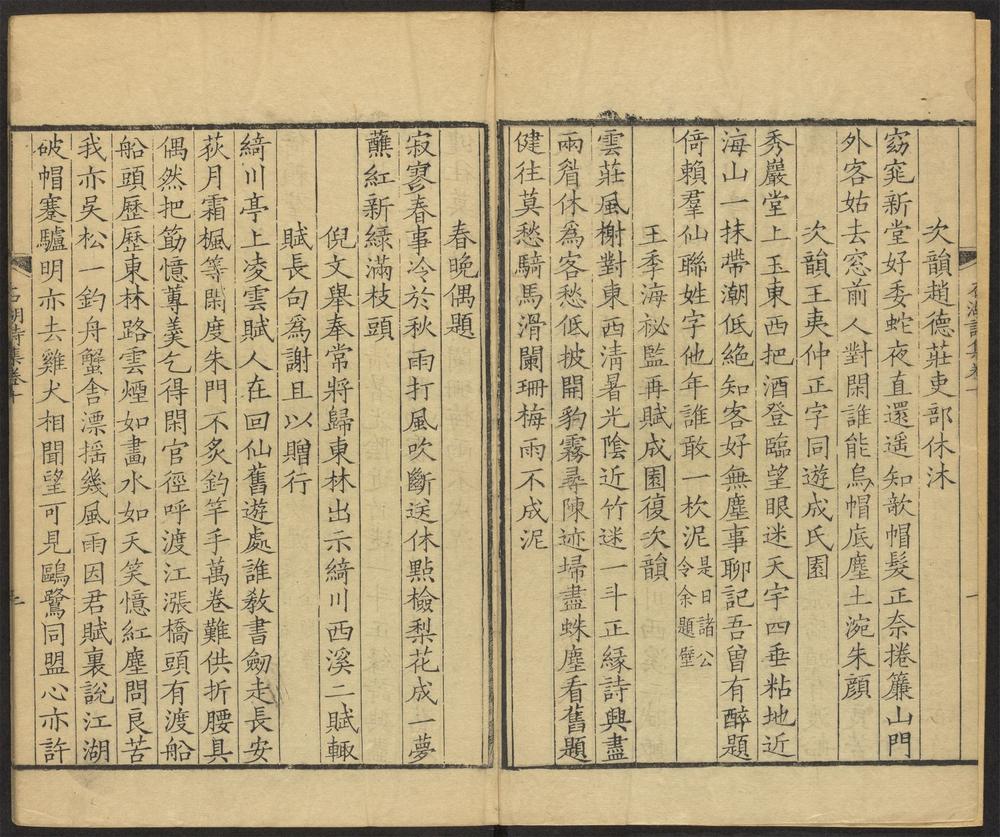 次韻趙德莊吏部休沐
窈窕新堂好委蛇夜直還遥知欹帽髮正奈捲簾山門
外客姑去窓前人對閑誰能烏帽底塵土涴朱顔
次韻王夷仲正字同遊成氏園
秀巖堂上玉東西把酒登臨望眼迷天宇四垂粘地近
海山一抹帶潮低絶知客好無塵事聊記吾曾有醉題
倚賴羣仙聯姓字他年誰敢一杴泥是日諸公
令余題壁
王季海祕監再賦成園復次韻
雲莊風榭對東西清暑光陰近竹迷一斗正緣詩興盡
兩眉休為客愁低披開豹霧尋陳迹埽盡蛛塵看舊題
健往莫愁騎馬滑闌珊梅雨不成泥
春晚偶題
寂寥春事冷於秋雨打風吹斷送休點檢梨花成一夢
蘸紅新綠滿枝頭
倪文舉奉常將歸東林出示綺川西溪二賦輙
賦長句爲謝且以贈行
綺川亭上凌雲賦人在回仙舊遊處誰敎書劒走長安
荻月霜楓等閑度朱門不炙釣竿手萬卷難供折腰具
偶然把筯憶蓴羮乞得閑官徑呼渡江漲橋頭有渡船
船頭歷歷東林路雲煙如畫水如天笑憶紅塵問良苦
我亦吳松一釣舟蟹舍漂摇幾風雨因君賦裏說江湖
破帽蹇驢明亦去雞犬相聞望可見鷗鷺同盟心亦許
石湖詩集卷十